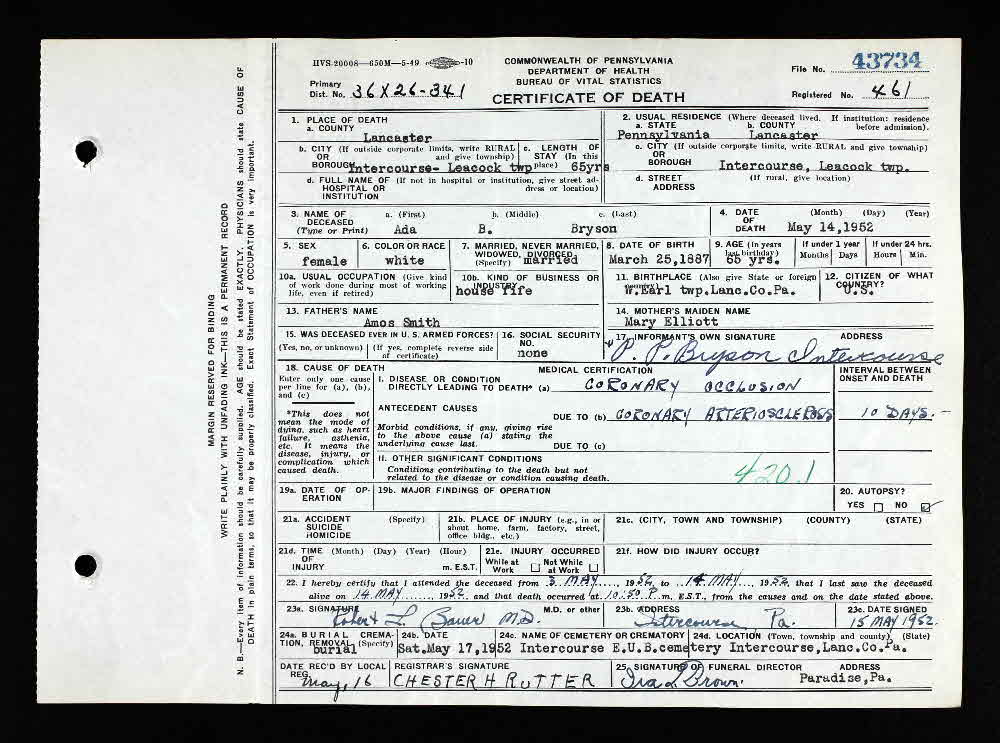 HVS-20008—650M—5-49 -10
COMMONWEALTH OF PENNSYLVANIA
DEPARTMENT OF HEALTH
BUREAU OF VITAL STATISTICS
CERTIFICATE OF DEATH
File No. 43734
Primary Dist. No. 36X26-341
Registered No. 461
1. PLACE OF DEATH
a. COUNTY
Lancaster
2. USUAL RESIDENCE (Where deceased lived. If institution: residence before admission).
a. STATE b. COUNTY
Pennsylvania Lancaster
b. CITY (If outside corporate limits, write RURAL and give township) OR BOROUGH
Intercourse- Leacock twp
c. LENGTH OF STAY (In this place)
65yrs
c. CITY (If outside corporate limits, write RURAL and give township) OR BOROUGH
Intercourse, Leacock twp.
d. FULL NAME OF (If not in hospital or institution, give street address or location) HOSPITAL OR INSTITUTION
d. STREET ADDRESS (If rural, give location)
3. NAME OF DECEASED (Type or Print)
a. (First) b. (Middle) c. (Last)
Ada B. Bryson
4. DATE OF DEATH (Month) (Day) (Year)
May 14,1952
5. SEX
female
6. COLOR OR RACE
white
7. MARRIED, NEVER MARRIED, WIDOWED, DIVORCED (Specify)
married
8. DATE OF BIRTH
March 25,1887
9. AGE (In years last birthday)
65 yrs.
If under 1 year Months Days
If under 24 hrs. Hours Min.
10a. USUAL OCCUPATION (Give kind of work done during most of working life, even if retired)
10b. KIND OF BUSINESS OR INDUSTRY
house fife
11. BIRTHPLACE (Also give State or foreign country)
W.Earl twp.Lanc.Co.Pa.
12. CITIZEN OF WHAT COUNTRY?
U.S.
13. FATHER'S NAME
Amos Smith
14. MOTHER'S MAIDEN NAME
Mary Elliott
15. WAS DECEASED EVER IN U.S. ARMED FORCES?
(Yes, no, or unknown) (If yes, complete reverse side of certificate)
16. SOCIAL SECURITY NO.
none
17. INFORMANT'S OWN SIGNATURE ADDRESS
P. P. Bryson Intercourse
18. CAUSE OF DEATH
Enter only one cause per line for (a), (b), and (c)
*This does not mean the mode of dying, such as heart failure, asthenia, etc. It means the disease, injury, or complication which caused death.
MEDICAL CERTIFICATION
INTERVAL BETWEEN ONSET AND DEATH
I. DISEASE OR CONDITION
DIRECTLY LEADING TO DEATH* (a) CORONARY OCCLUSION
ANTECEDENT CAUSES
DUE TO (b) CORONARY ARTERIOSCLEROSIS 10 DAYS.-
Morbid conditions, if any, giving rise to the above cause (a) stating the underlying cause last.
DUE TO (c)
II. OTHER SIGNIFICANT CONDITIONS
Conditions contributing to the death but not related to the disease or condition causing death.
420.1
19a. DATE OF OPERATION
19b. MAJOR FINDINGS OF OPERATION
20. AUTOPSY?
YES NO
21a. ACCIDENT SUICIDE HOMICIDE (Specify)
21b. PLACE OF INJURY (e.g., in or about home, farm, factory, street, office bldg., etc.)
21c. (CITY, TOWN AND TOWNSHIP) (COUNTY) (STATE)
21d. TIME OF INJURY (Month) (Day) (Year) (Hour) m. E.S.T.
21e. INJURY OCCURRED
While at Work Not While at Work
21f. HOW DID INJURY OCCUR?
22. I hereby certify that I attended the deceased from 3 MAY, 1952 to 14 MAY, 1952 that I last saw the deceased
alive on 14 MAY, 1952 and that death occurred at 10:50 P.m, E.S.T., from the causes and on the date stated above.
23a. SIGNATURE M.D. or other
Robert L. Bauer M.D.
23b. ADDRESS
Intercourse Pa.
23c. DATE SIGNED
15 MAY 1952.
24a. BURIAL CREMATION, REMOVAL (Specify)
burial
24b. DATE
Sat.May 17,1952
24c. NAME OF CEMETERY OR CREMATORY
Intercourse E.U.B.cemetery
24d. LOCATION (Town, township and county) (State)
Intercourse,Lanc.Co.Pa.
DATE REC'D BY LOCAL REG.
May, 16
REGISTRAR'S SIGNATURE
CHESTER H RUTTER
25. SIGNATURE OF FUNERAL DIRECTOR ADDRESS
Ira L Brown. Paradise,Pa.
MARGIN RESERVED FOR BINDING
WRITE PLAINLY WITH UNFADING INK—THIS IS A PERMANENT RECORD
N. B.—Every item of information should be carefully supplied. AGE should be stated EXACTLY. PHYSICIANS should state CAUSE OF
DEATH in plain terms, so that it may be properly classified. Exact Statement of OCCUPATION is very important.